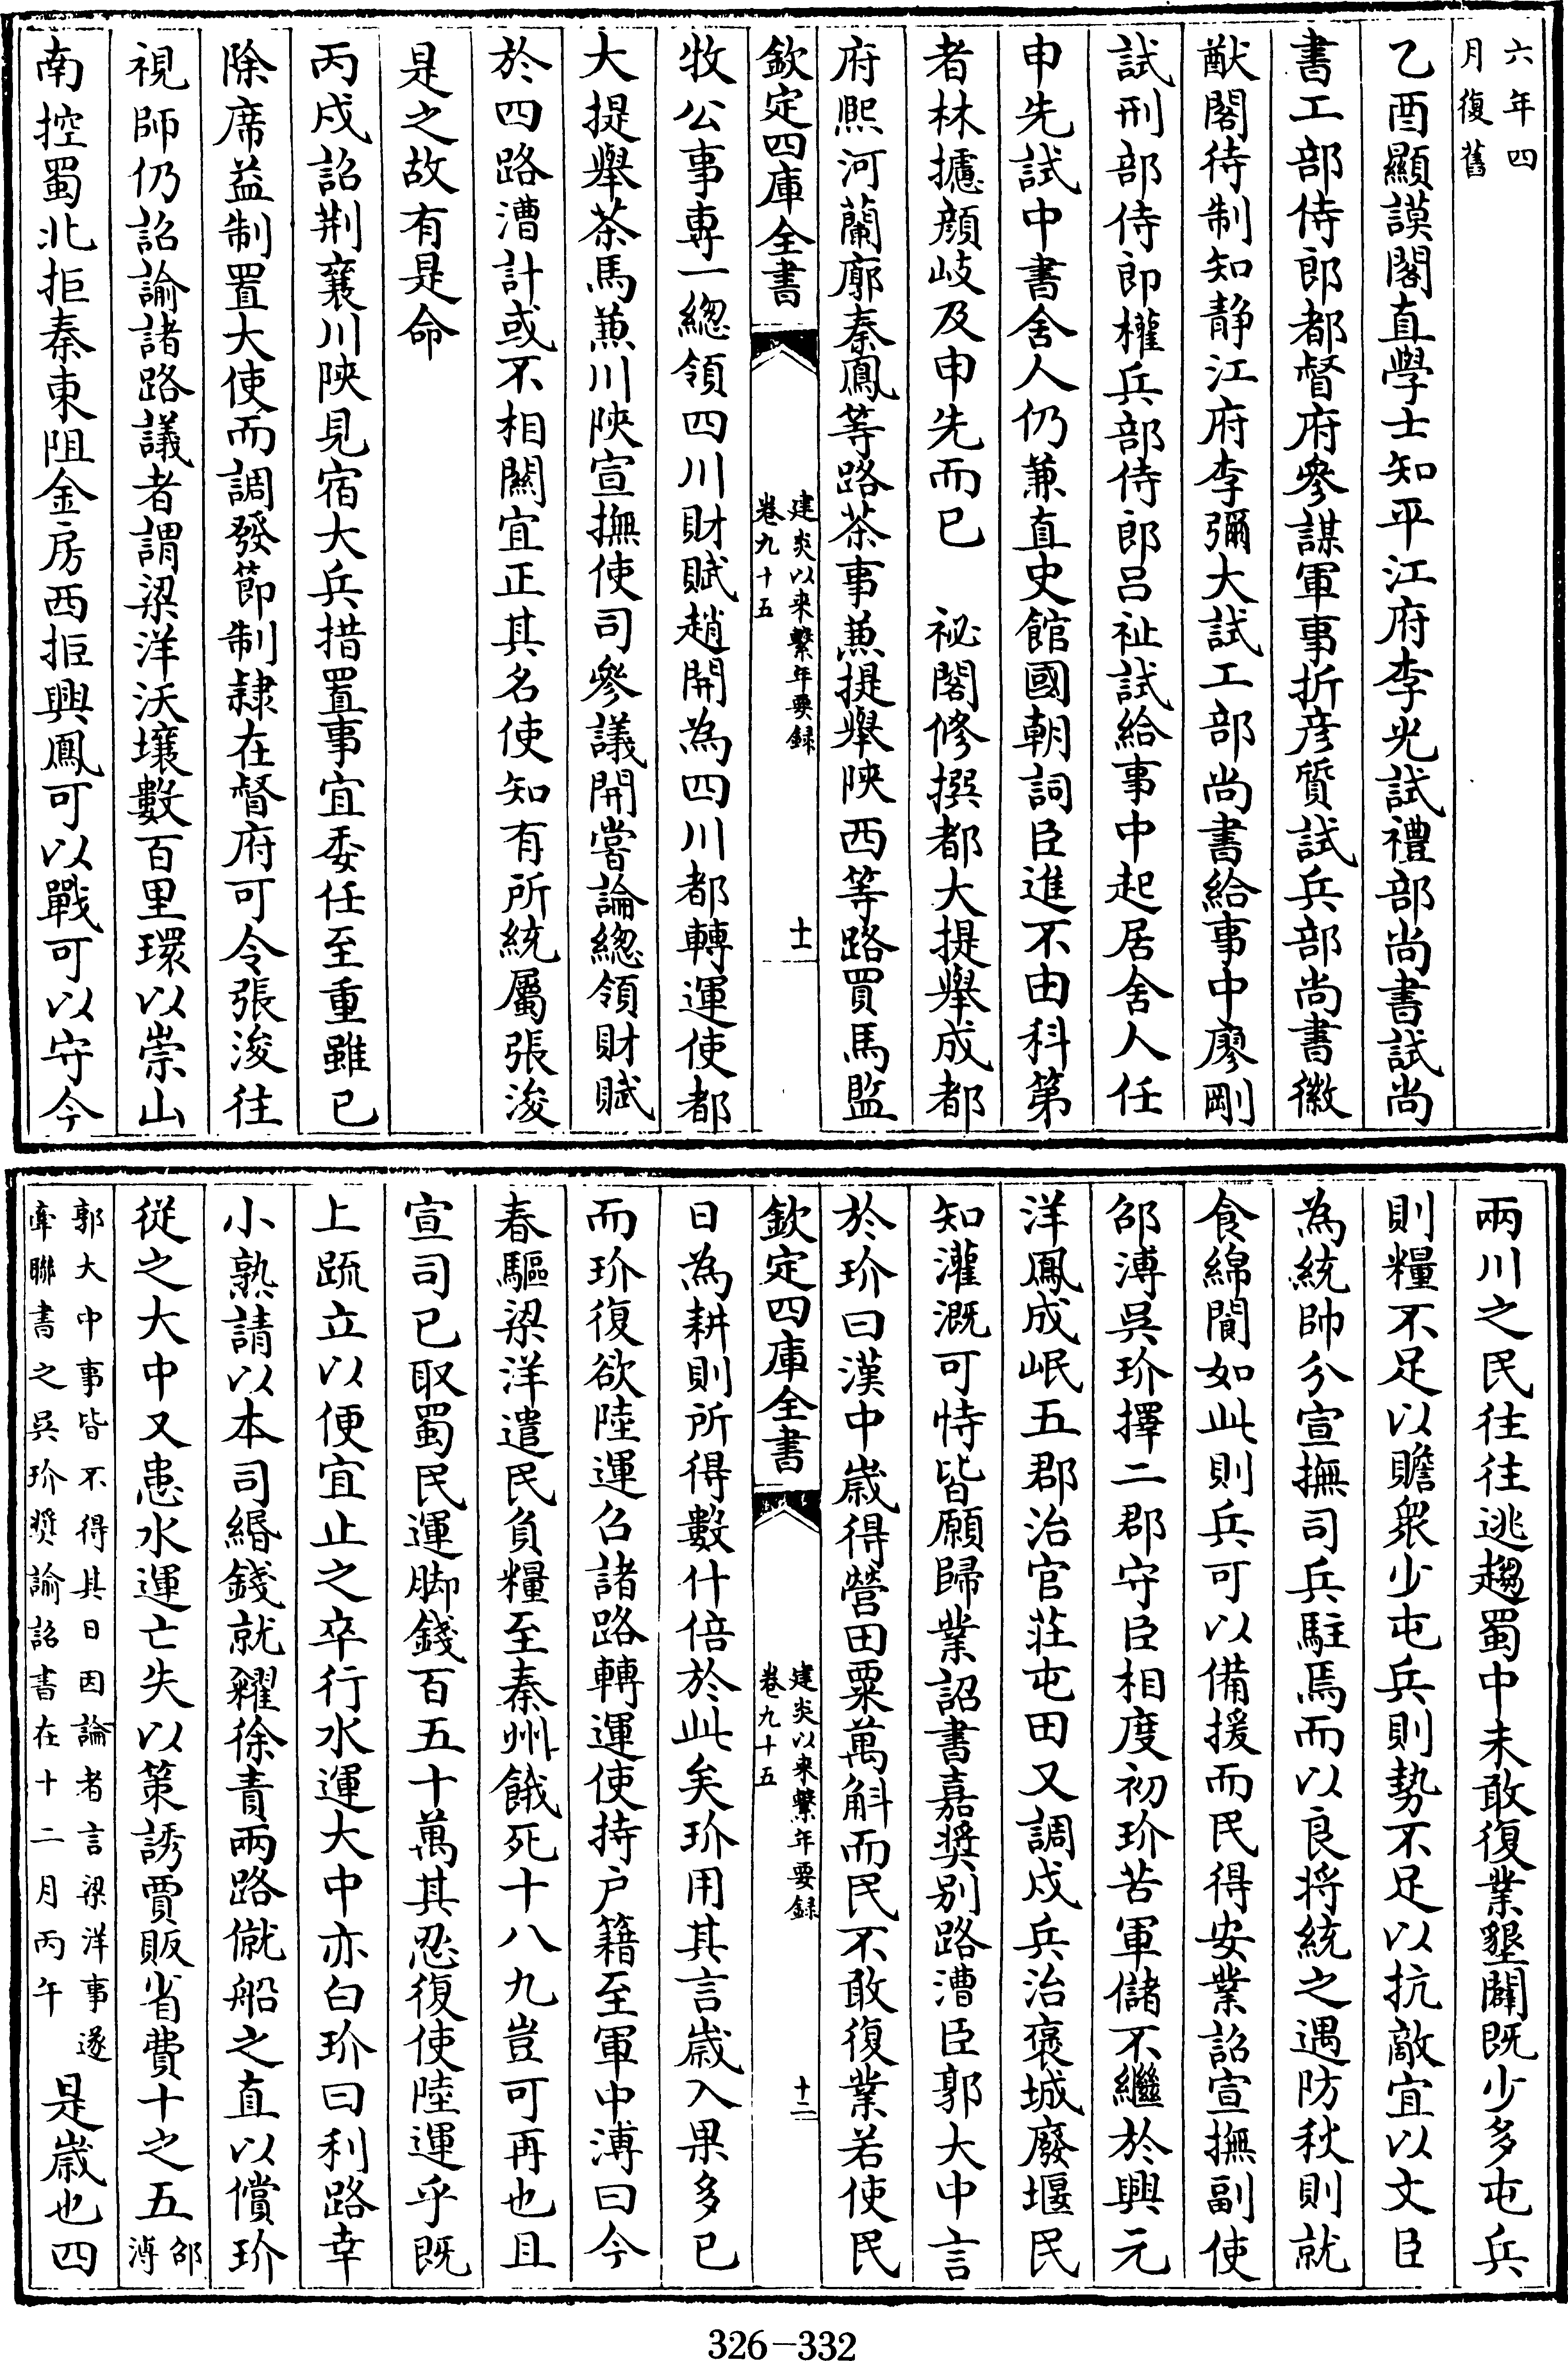 六年四
月復舊
乙酉顯謨閣直學士知平江府李光試禮部尚書試尚
書工部侍郎都督府參謀軍事折彦質試兵部尚書徽
猷閣待制知静江府李彌大試工部尚書給事中廖剛
試刑部侍郎權兵部侍郎吕祉試給事中起居舍人任
申先試中書舍人仍兼直史館國朝詞臣進不由科第
者林攄顔岐及申先而已　祕閣修撰都大提舉成都
府熙河蘭廓秦鳳等路茶事兼提舉陜西等路買馬監
欽定四庫全書
建炎以来繫年要録
卷九十五
十一
牧公事專一總領四川財賦趙開為四川都轉運使都
大提舉茶馬兼川陜宣撫使司參議開嘗論總領財賦
於四路漕計或不相關宜正其名使知有所統屬張浚
是之故有是命
丙戍詔荆襄川陜見宿大兵措置事宜委任至重雖已
除席益制置大使而調發節制隷在督府可令張浚往
視師仍詔諭諸路議者謂梁洋沃壤數百里環以崇山
南控蜀北拒秦東阻金房西拒興鳳可以戰可以守今
兩川之民往往逃趨蜀中未敢復業墾闢既少多屯兵
則糧不足以贍衆少屯兵則勢不足以抗敵宜以文臣
為統帥分宣撫司兵駐焉而以良将統之遇防秋則就
食綿閬如此則兵可以備援而民得安業詔宣撫副使
邵溥吳玠擇二郡守臣相度初玠苦軍儲不繼於興元
洋鳳成岷五郡治官莊屯田又調戍兵治褒城廢堰民
知灌溉可恃皆願歸業詔書嘉奬别路漕臣郭大中言
於玠曰漢中歲得營田粟萬斛而民不敢復業若使民
欽定四庫全書
建炎以来繫年要録
卷九十五
十二
日為耕則所得數什倍於此矣玠用其言歲入果多已
而玠復欲陸運召諸路轉運使持户籍至軍中溥曰今
春驅梁洋遣民負糧至秦州餓死十八九豈可再也且
宣司已取蜀民運脚錢百五十萬其忍復使陸運乎既
上疏立以便宜止之卒行水運大中亦白玠曰利路幸
小熟請以本司緡錢就糴徐責兩路僦船之直以償玠
從之大中又患水運亡失以策誘賈販省費十之五邵
溥
郭大中事皆不得其日因論者言梁洋事遂
牽聯書之吳玠奬諭詔書在十二月丙午
是歲也四
326-332